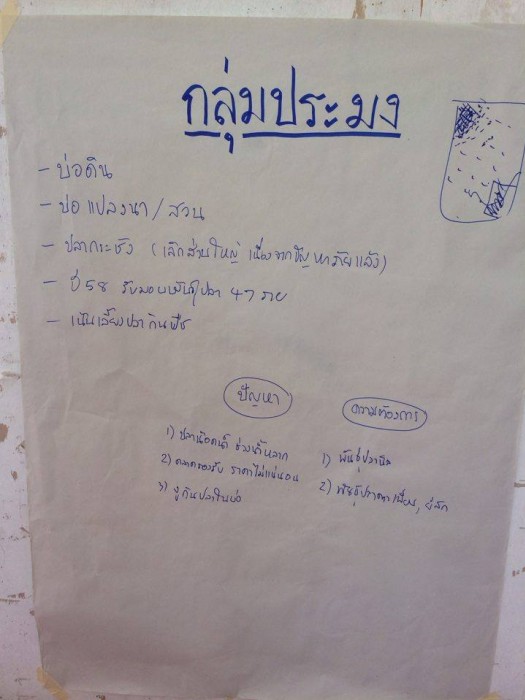 กลุ่มประมง
- บ่อดิน
- บ่อแปลงนา / สวน
- ปลากระชัง (เลิกส่วนใหญ่ เนื่องจากปัญหาภัยแล้ง)
- ปี 58 รับมอบพันธุ์ปลา 47 ราย
- เน้นเลี้ยงปลากินพืช
ปัญหา
1) ปลาน็อคน้ำ ช่วงน้ำหลาก
2) ตลาดรองรับ ราคาไม่แน่นอน
3) งูกินปลาในบ่อ
ความต้องการ
1) พันธุ์ปลานิล
2) พันธุ์ปลาตะเพียน, ยี่สก